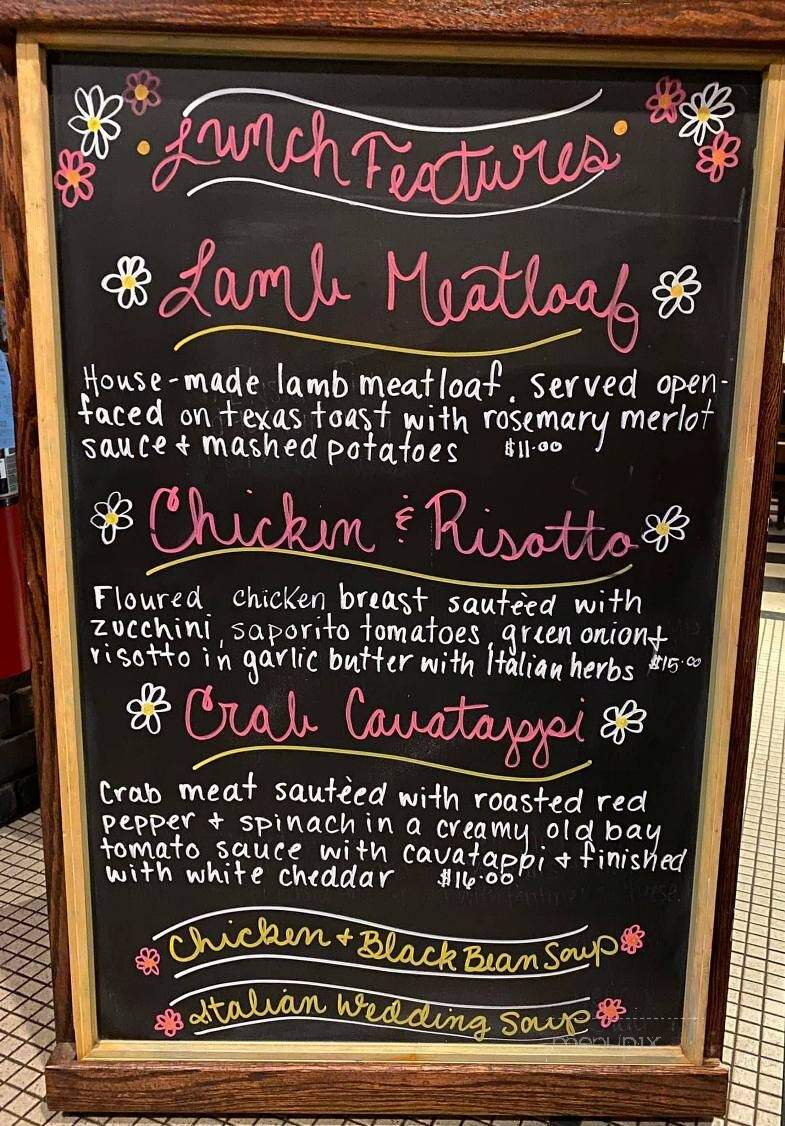 Lunch Features
Lamb Meatloaf
House-made lamb meatloaf. served open-
faced on texas toast with rosemary merlot
sauce + mashed potatoes $11.00
Chicken & Risotto
Floured chicken breast sautèed with
zucchini, saporito tomatoes, green onion +
risotto in garlic butter with Italian herbs $15.00
Crab Cavatappi
Crab meat sautèed with roasted red
pepper + spinach in a creamy old bay
tomato sauce with cavatappi + finished
with white cheddar $16.00
Chicken + Black Bean Soup
Italian Wedding Soup
menupix